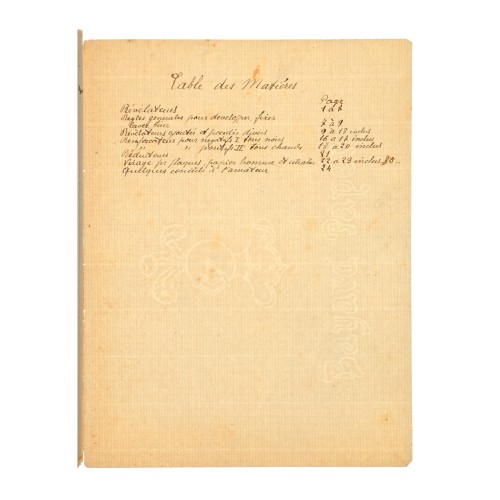 Table des Matières
Page
Révélateurs 1 à 7
Règles générales pour développer, fixer
laver 7 à 9
Révélateurs et divers 9 à 15 inclus
Renforçateur pour négatifs I tons noirs 16 à 17 inclus
" " positifs II tons chauds 18 à 20 inclus
Réducteurs 21
Virage pr plaques, papier bromure et 22 à 23 inclus
Quelques conseils à l'amateur 24